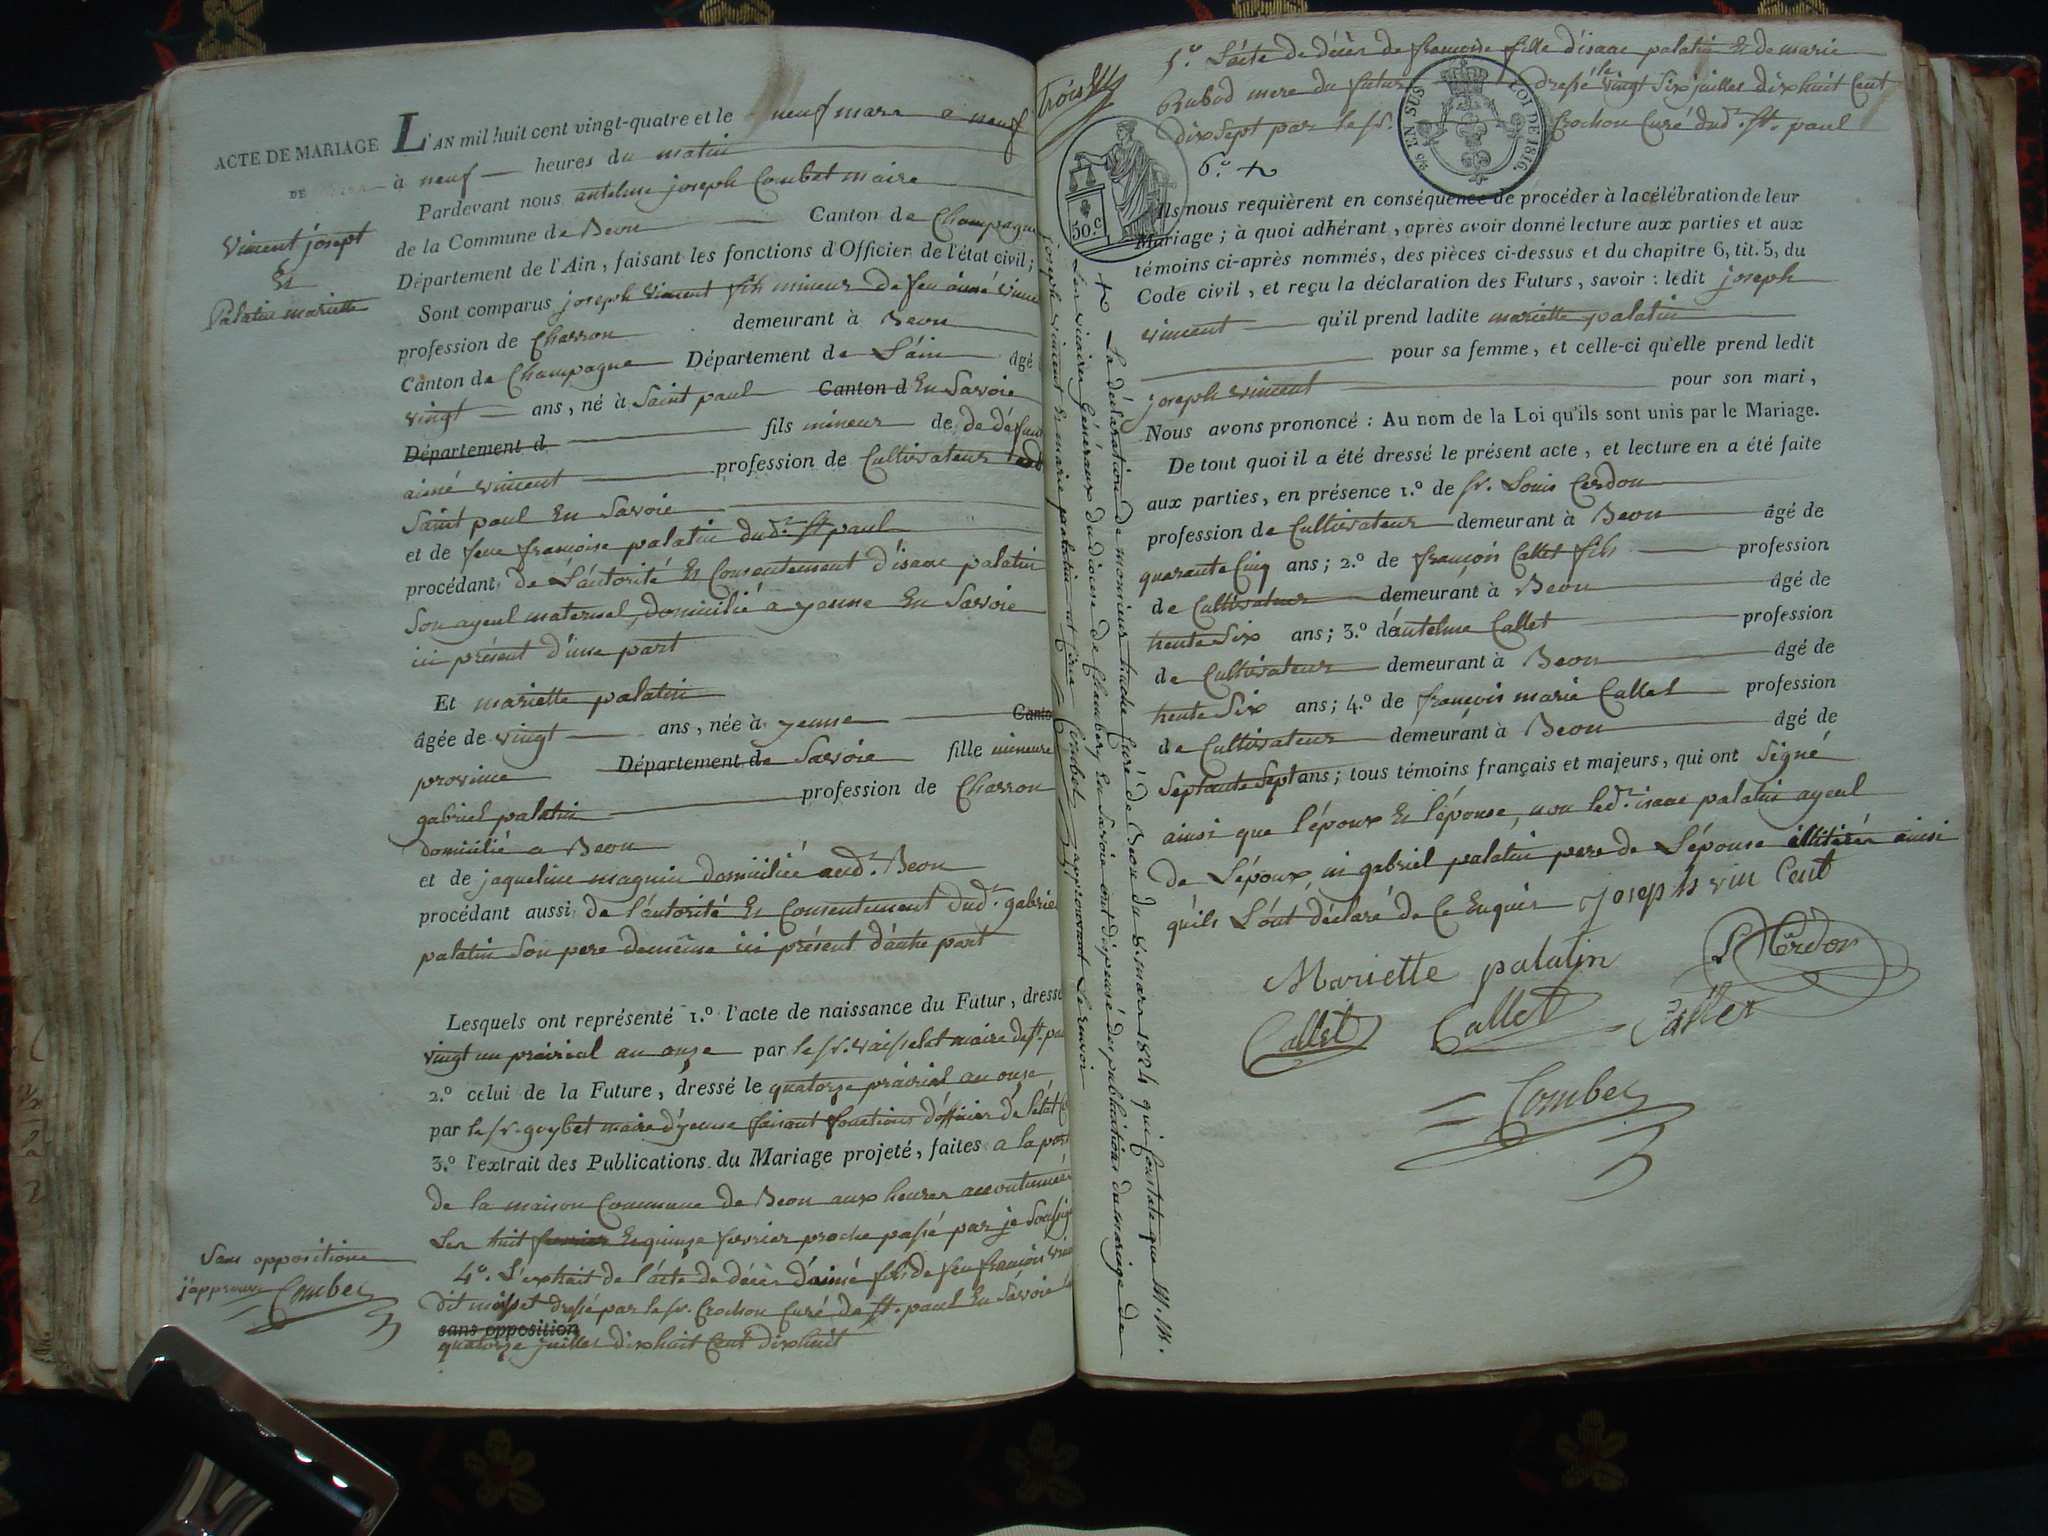 ACTE DE MARIAGE
DE
Vincent joseph
Et
Palatin mariette
L'AN mil huit cent vingt-quatre et le neuf mars a neuf
à neuf heures du matin
Pardevant nous antelme joseph Combet maire
de la Commune de Beon Canton de Champagne
Département de l'Ain, faisant les fonctions d'Officier de l'état civil;
Sont comparus joseph vincent fils mineur de feu aimé vince
profession de Charron demeurant à Beon
Canton de Champagne Département de L'ain âgé
vingt ans, né à Saint paul Canton d En Savoie
Département d fils mineur de de défunt
aimé vincent profession de Cultivateur aud
Saint paul En Savoie
et de feue francoise palatin dud. St. paul
procédant de L'autorité Et Consentement d'isaac palatin
Son ayeul maternel, domicilié a yenne En Savoie
ici présent d'une part
Et mariette palatin
âgée de vingt ans, née à yenne Canto
province Département de Savoie fille mineure
gabriel palatin profession de Charron
domicilié a Beon
et de jaqueline magnin domiciliée aud. Beon
procédant aussi de l'autorité Et Consentement dud. gabriel
palatin Son pere demême ici présent d'autre part
Lesquels ont représenté 1.º l'acte de naissance du Futur, dressé
vingt un prairial an onze par le sr. vaisselet maire de st. pau
2.º celui de la Future, dressé le quatorze prairial an onze
par le sr. goybet maire d'yenne faisant fonctions d'officier de l'état C
3.º l'extrait des Publications du Mariage projeté, faites a la por
de la maison Commune de Beon aux heures accoutumées
Les huit fevrier Et quinze fevrier proche passé par je Soussig
4º. L'extrait de l'acte de décès d'aimé fils de feu francois vin
dit dressé par le sr. Crochon Curé de St. paul En Savoie
sans opposition
quatorze juillet dix huit Cent dix huit
Sans oppositions
j'approuve Combet
trois
5º. L'acte de décès de francoise fille d'isaac palatin Et de marie
Rubod mere du futur dressé le vingt Six juillet dix huit Cent
dix Sept par le sr. Crochon Curé dud. St. paul
EN SUS LOI DE 1816.
6º.
50.c.
Ils nous requièrent en conséquence de procéder à la célébration de leur
Mariage; à quoi adhérant, après avoir donné lecture aux parties et aux
témoins ci-après nommés, des pièces ci-dessus et du chapitre 6, tit. 5, du
Code civil, et reçu la déclaration des Futurs, savoir: ledit joseph
vincent qu'il prend ladite mariette palatin
pour sa femme, et celle-ci qu'elle prend ledit
joseph vincent pour son mari,
Nous avons prononcé: Au nom de la Loi qu'ils sont unis par le Mariage.
De tout quoi il a été dressé le présent acte, et lecture en a été faite
aux parties, en présence 1.º de sr. Louis Cerdon
profession de Cultivateur demeurant à Beon âgé de
quarante Cinq ans; 2.º de françois Callet fils profession
de Cultivateur demeurant à Beon âgé de
trente Six ans; 3.º de antelme Callet profession
de Cultivateur demeurant à Beon âgé de
trente Six ans; 4.º de françois marie Callet profession
de Cultivateur demeurant à Beon âgé de
Septante Sept ans; tous témoins français et majeurs, qui ont Signé
ainsi que l'époux Et l'épouse, non led. isaac palatin ayeul
de L'époux, ni gabriel palatin pere de L'épouse illitérés ainsi
qu'ils L'ont déclaré de Ce Enquis Joseph vin Cent
Mariette palatin
Cerdon
Callet Callet Callet
Combet
La déclaration de monsieur Curé de Beon du 8. mars 1824 qui Constate que M. M.
Les vicaires généraux du diocese de Chambery En Savoie ont dispensé des publications du mariage de
joseph vincent Et marie palatin Combet approuvant Le renvoi